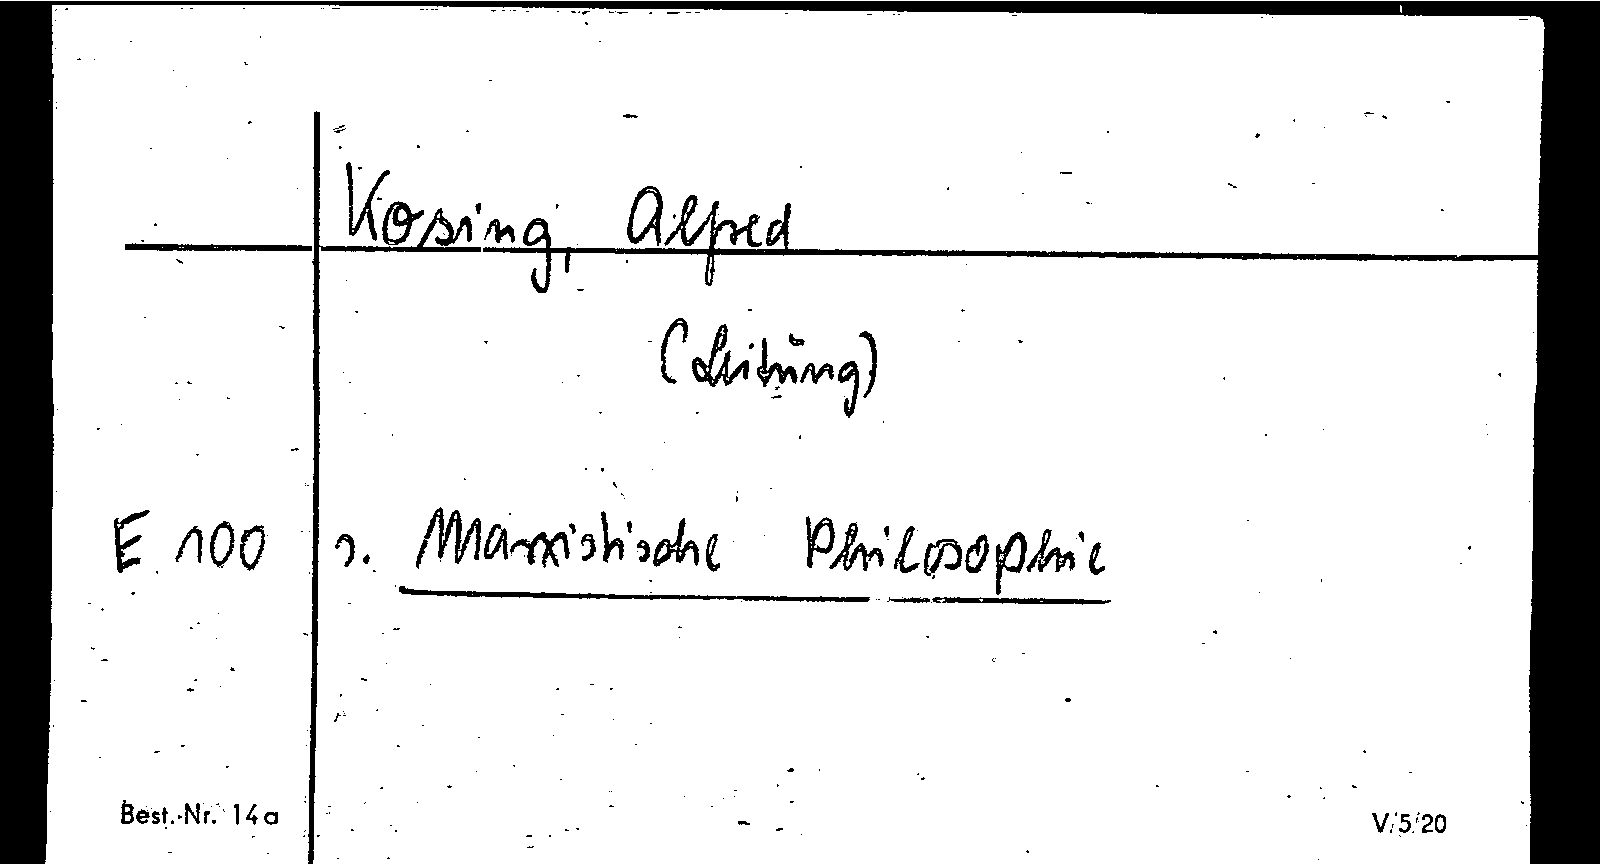 Kosing, Alfred
(Leitung)
E 100 s. Marxistische Philosophie
Best.-Nr. 14a V/5/20